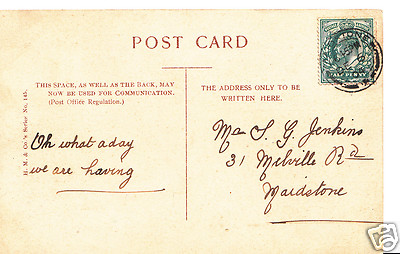 POST CARD
THIS SPACE, AS WELL AS THE BACK, MAY
NOW BE USED FOR COMMUNICATION.
(Post Office Regulation.)
THE ADDRESS ONLY TO BE
WRITTEN HERE.
H. M. & Co.'s Series No. 145.
Oh what a day
we are having
Mrs S. G. Jenkins
31 Melville Rd
Maidstone
HALF PENNY